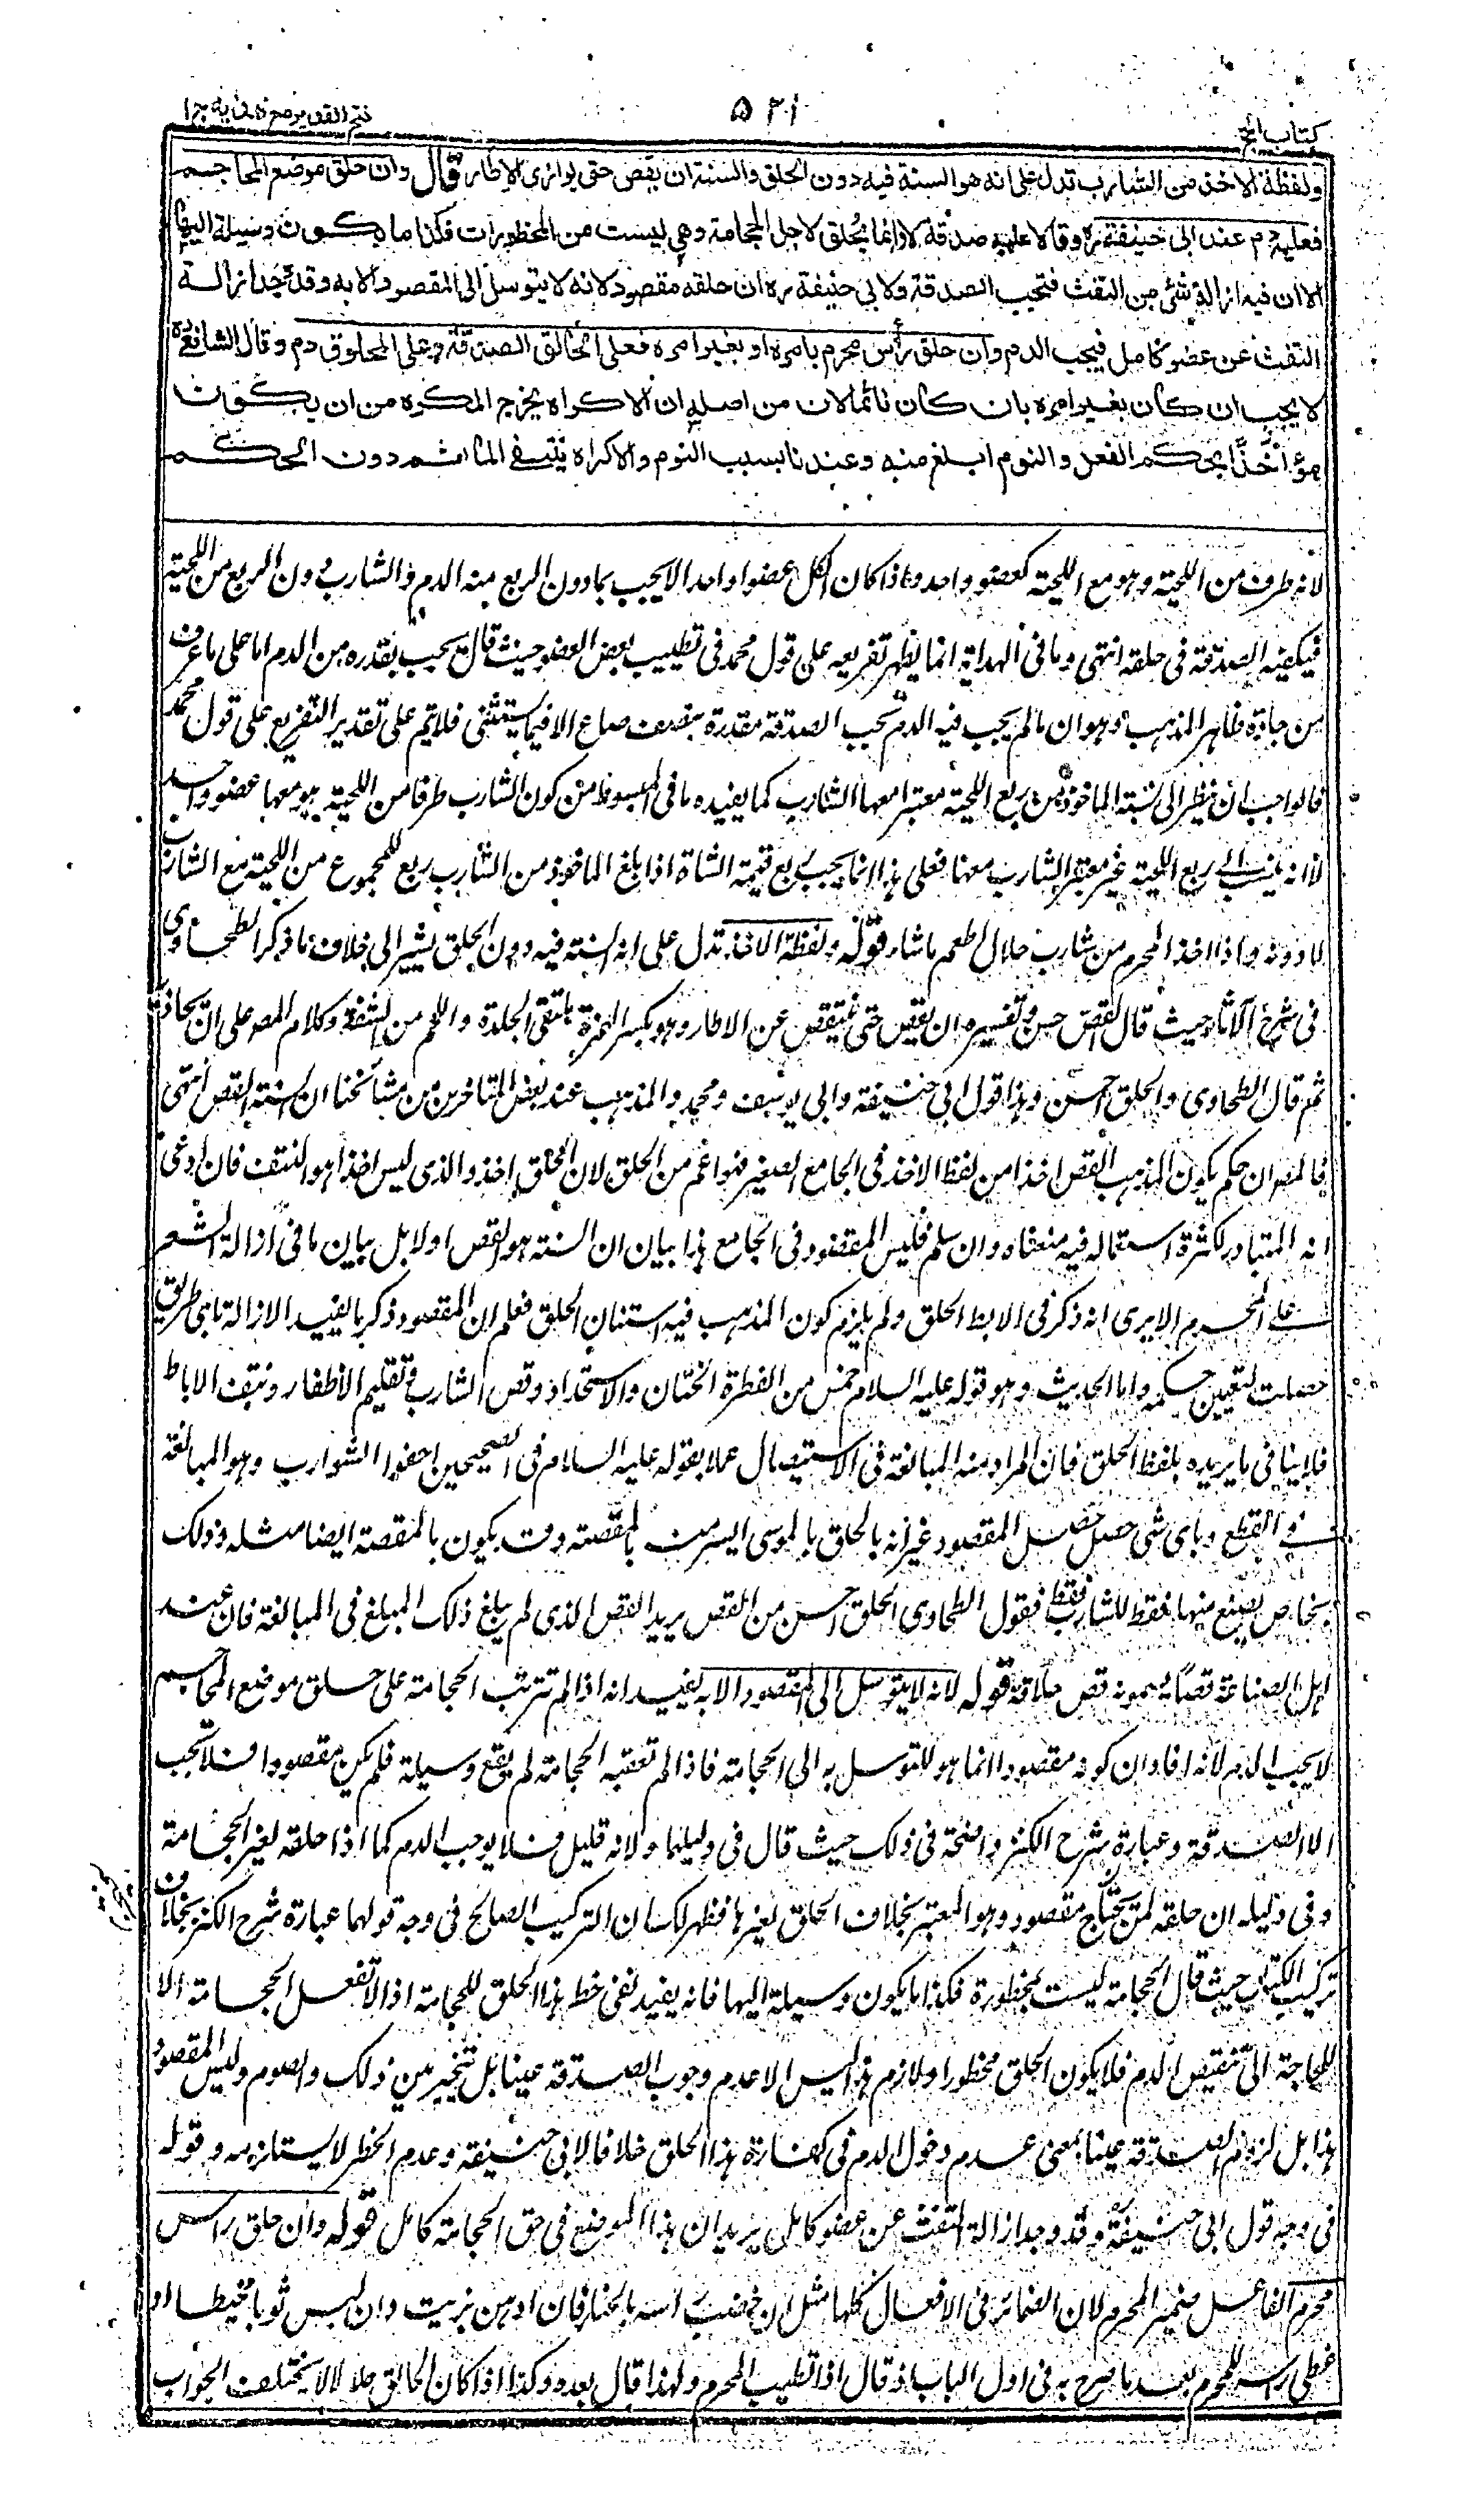 كتاب الحج
٥٢١
فتح القدير مع هدايه ج١
ولفظة الاخذ من الشارب تدل على انه هو السنة فيه دون الحلق والسنة ان يقص حتى يوازى الاطار قال وان حلق موضع المحاجم
فعليه دم عند ابى حنيفة ره وقالا عليه صدقة لانه انما يحلق لاجل الحجامة وهي ليست من المحظورات فكذا ما يكون وسيلة اليها
الا ان فيه ازالة شئ من التفث فتجب الصدقة ولابي حنيفة ره ان حلقه مقصود لانه لا يتوسل الى المقصود الا به وقد وجد ازالة
التفث عن عضو كامل فيجب الدم وان حلق رأس محرم بامره او بغير امره فعلى الحالق الصدقة وعلى المحلوق دم وقال الشافعى ره
لا يجب ان كان بغير امره بان كان نائما لان من اصله ان الاكراه يخرج المكره من ان يكون
مؤاخذا بحكم الفعل والنوم ابلغ منه وعندنا بسبب النوم والاكراه ينتفى المأثم دون الحكم
لانه طرف من اللحية وهو مع اللحية كعضو واحد واذا كان الكل عضوا واحدا لا يجب بما دون الربع منه الدم والشارب دون الربع من اللحية
فيكفيه الصدقة فى حلقه انتهى وما فى الهداية انما يظهر تفريعه على قول محمد فى تطييب بعض العضو حيث قال يجب بقدره من الدم اما على ما عرف
من جادة ظاهر المذهب وهو ان ما لم يجب فيه الدم تجب الصدقة مقدرة بنصف صاع الا فيما يستثنى فلا يتم على تقدير التفريع على قول محمد
فالواجب ان ينظر الى نسبة الماخوذ من ربع اللحية معتبرا معها الشارب كما يفيده ما فى المبسوط من كون الشارب طرفا من اللحية هو معها عضو واحد
لا انه ينسب الى ربع اللحية غير معتبر الشارب معها فعلى هذا انما يجب ربع قيمة الشاة اذا بلغ الماخوذ من الشارب ربع المجموع من اللحية مع الشارب
لا دونه واذا اخذ المحرم من شارب حلال اطعم ما شاء قوله ولفظة الاخذ تدل على انه السنة فيه دون الحلق يشير الى خلاف ما ذكر الطحاوى
فى شرح الآثار حيث قال القص حسن وتفسيره ان يقص حتى ينتقص عن الاطار وهو بكسر الهمزة ملتقى الجلدة واللحم من الشفة وكلام المص على ان يحاذيه
ثم قال الطحاوى والحلق احسن وهذا قول ابى حنيفة وابى يوسف ومحمد والمذهب عند بعض المتاخرين من مشائخنا ان السنة القص انتهى
فالمص ان حكم بكون المذهب القص اخذا من لفظ الاخذ فى الجامع الصغير فهو اعم من الحلق لان الحلق اخذ والذى ليس اخذا هو النتف فان ادعى
انه المتبادر لكثرة استعماله فيه منعناه وان سلم فليس المقصود فى الجامع هذا بيان ان السنة هو القص او لا بل بيان ما فى ازالة الشعر
على المحرم الا يرى انه ذكر فى الابط الحلق ولم يلزم كون المذهب فيه استنان الحلق فعلم ان المقصود ذكر ما يفيد الازالة باى طريق
حصلت لتعيين حكمه واما الحديث وهو قوله عليه السلام خمس من الفطرة الختان والاستحداد وقص الشارب وتقليم الاظفار ونتف الاباط
فلا ينافى ما يريده بلفظ الحلق فان المراد منه المبالغة فى الاستيصال عملا بقوله عليه السلام فى الصحيحين احفوا الشوارب وهو المبالغة
فى القطع وباى شئ حصل حصل المقصود غير انه بالحلق بالموسى ايسر منه بالمقصة وقد يكون بالمقصة ايضا مثله وذلك
بخاص يصنع منها فقط للشارب فقط فقول الطحاوى الحلق احسن من القص يريد القص الذى لم يبلغ ذلك المبلغ فى المبالغة فان عند
اهل الصناعة قصا يسمونه قص حلاقة قوله لانه لا يتوسل الى المقصود الا به يفيد انه اذا لم تترتب الحجامة على حلق موضع المحاجم
لا يجب الدم لانه افاد ان كونه مقصودا انما هو للتوسل به الى الحجامة فاذا لم تعقبه الحجامة لم يقع وسيلة فلم يكن مقصودا فلا تجب
الا الصدقة وعبارة شرح الكنز واضحة فى ذلك حيث قال فى دليلهما ولانه قليل فلا يوجب الدم كما اذا حلقه لغير الحجامة
وفى دليله ان حلقه لمن يحتاج مقصود وهو المعتبر بخلاف الحلق لغيرها فظهر لك ان التركيب الصالح فى وجه قولهما عبارة شرح الكنز بخلاف
تركيب الكتاب حيث قال الحجامة ليست بمحظورة فكذا ما يكون وسيلة اليها فانه يفيد نفى حظر هذا الحلق للحجامة اذ لا تفعل الحجامة الا
للحاجة الى تنقيص الدم فلا يكون الحلق محظورا ولازم هذا ليس الا عدم وجوب الصدقة عينا بل تخير بين ذلك والصوم وليس المقصود
هذا بل لزوم الصدقة عينا بمعنى عدم دخول الدم فى كفارة هذا الحلق خلافا لابى حنيفة وعدم الحظر لا يستلزمه وقوله
فى وجه قول ابى حنيفة وقد وجد ازالة التفث عن عضو كامل يريد ان هذا الموضع فى حق الحجامة كامل قوله وان حلق راس
محرم الفاعل ضمير المحرم لان الضمائر فى الافعال كلها مثل ان خضب راسه بالحناء فان ادهن بزيت وان لبس ثوبا مخيطا او
غطى راسه للمحرم بعد ما صرح به فى اول الباب اذ قال اذا تطيب المحرم ولهذا قال بعده وكذا اذا كان الحالق حلالا لا يختلف الجواب